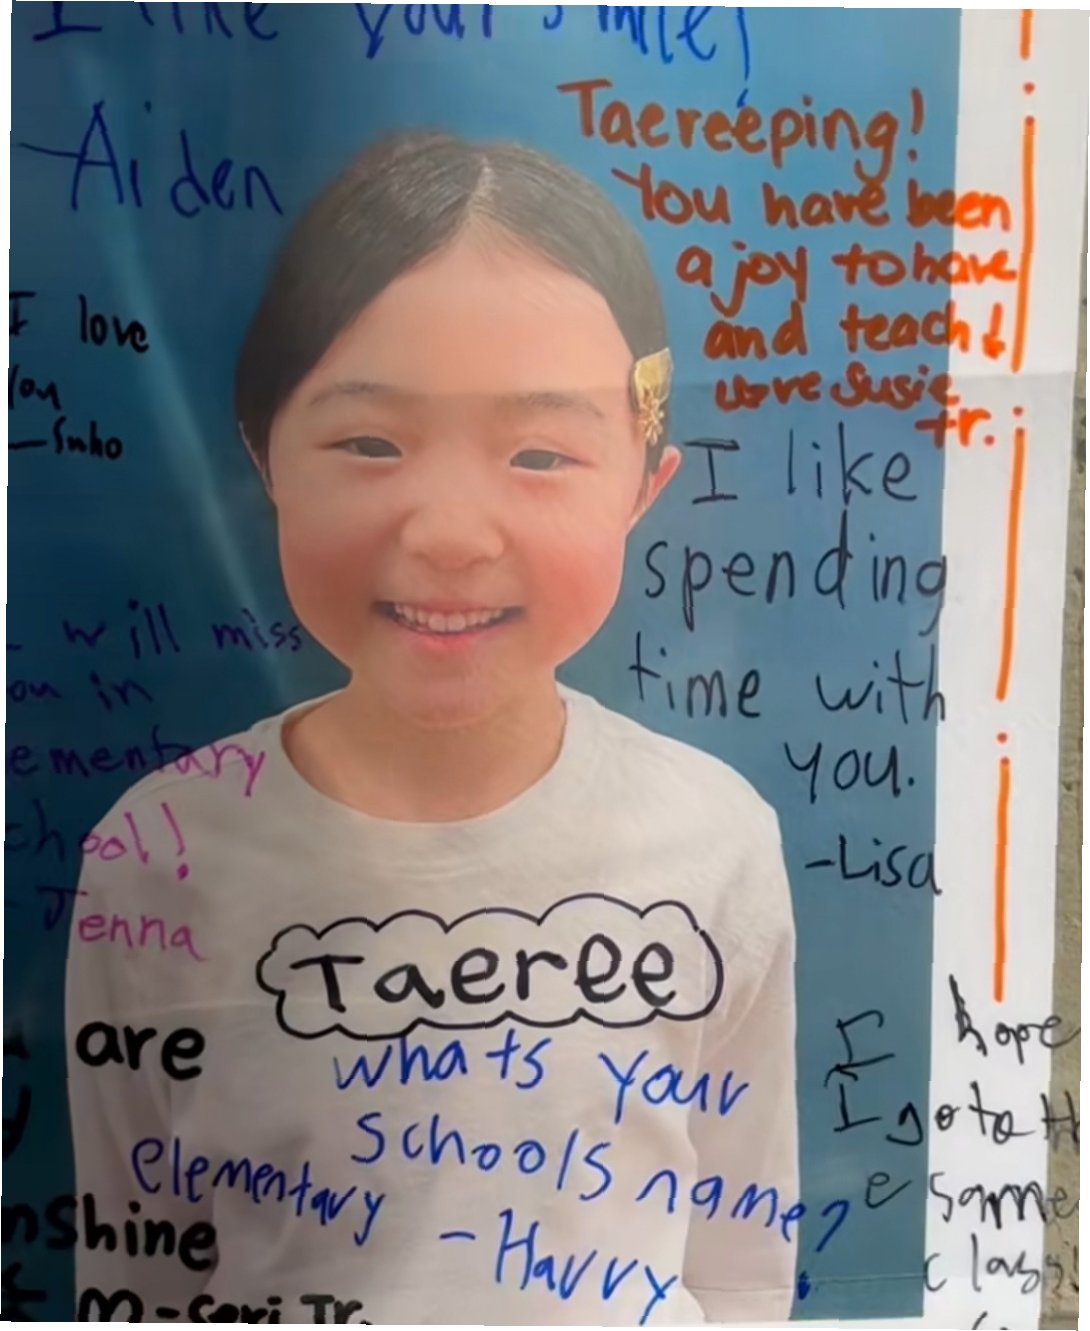 I like your smile!
Aiden
Taereeping!
You have been
a joy to have
and teach!
Love Susie
tr.
I love
you
-Suho
I like
spending
time with
you.
-Lisa
will miss
in
ementary
chool!
Jenna
Taeree
are
nshine
m-seri Tr.
whats your
schools name?
elementary
-Harry
I hope
I go to
same
class!